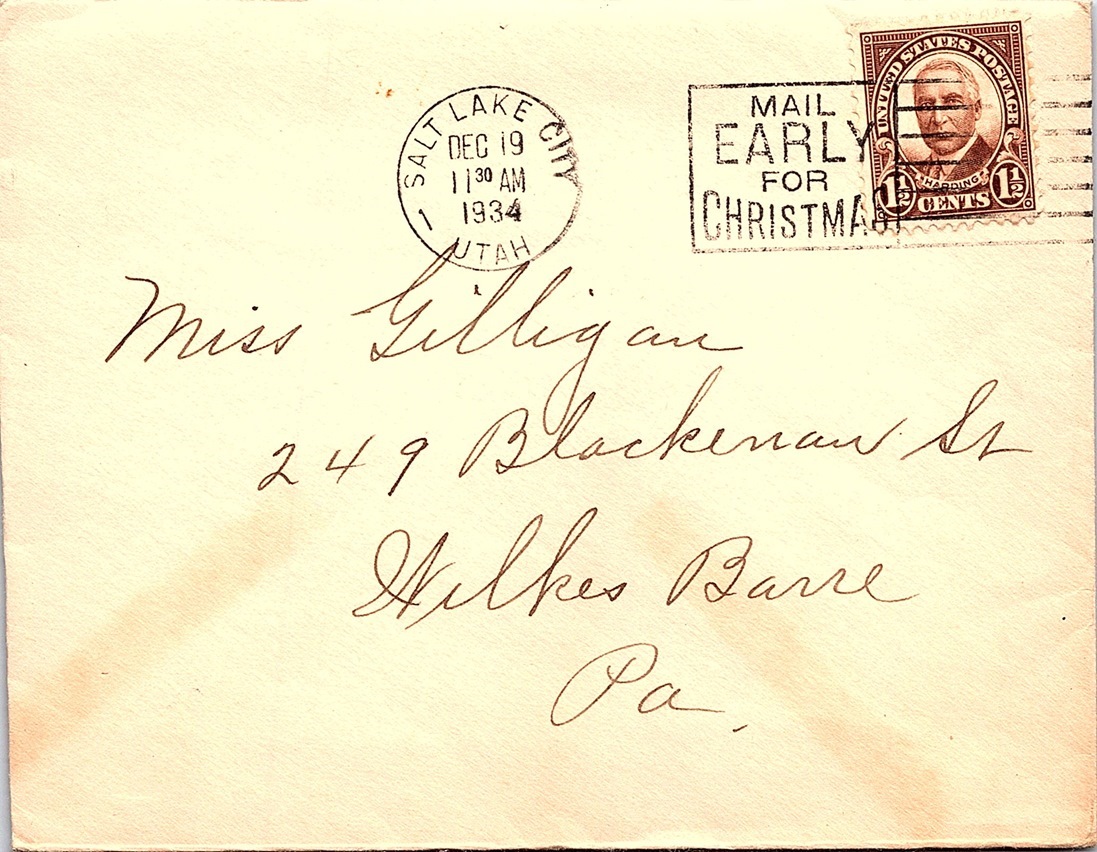 SALT LAKE CITY
DEC 19
11 30 AM
1934
1
UTAH
MAIL
EARLY
FOR
CHRISTMAS
UNITED STATES POSTAGE
HARDING
1 1/2 CENTS 1 1/2
Miss Gilligan
249 Blackenaw St
Wilkes Barre
Pa.